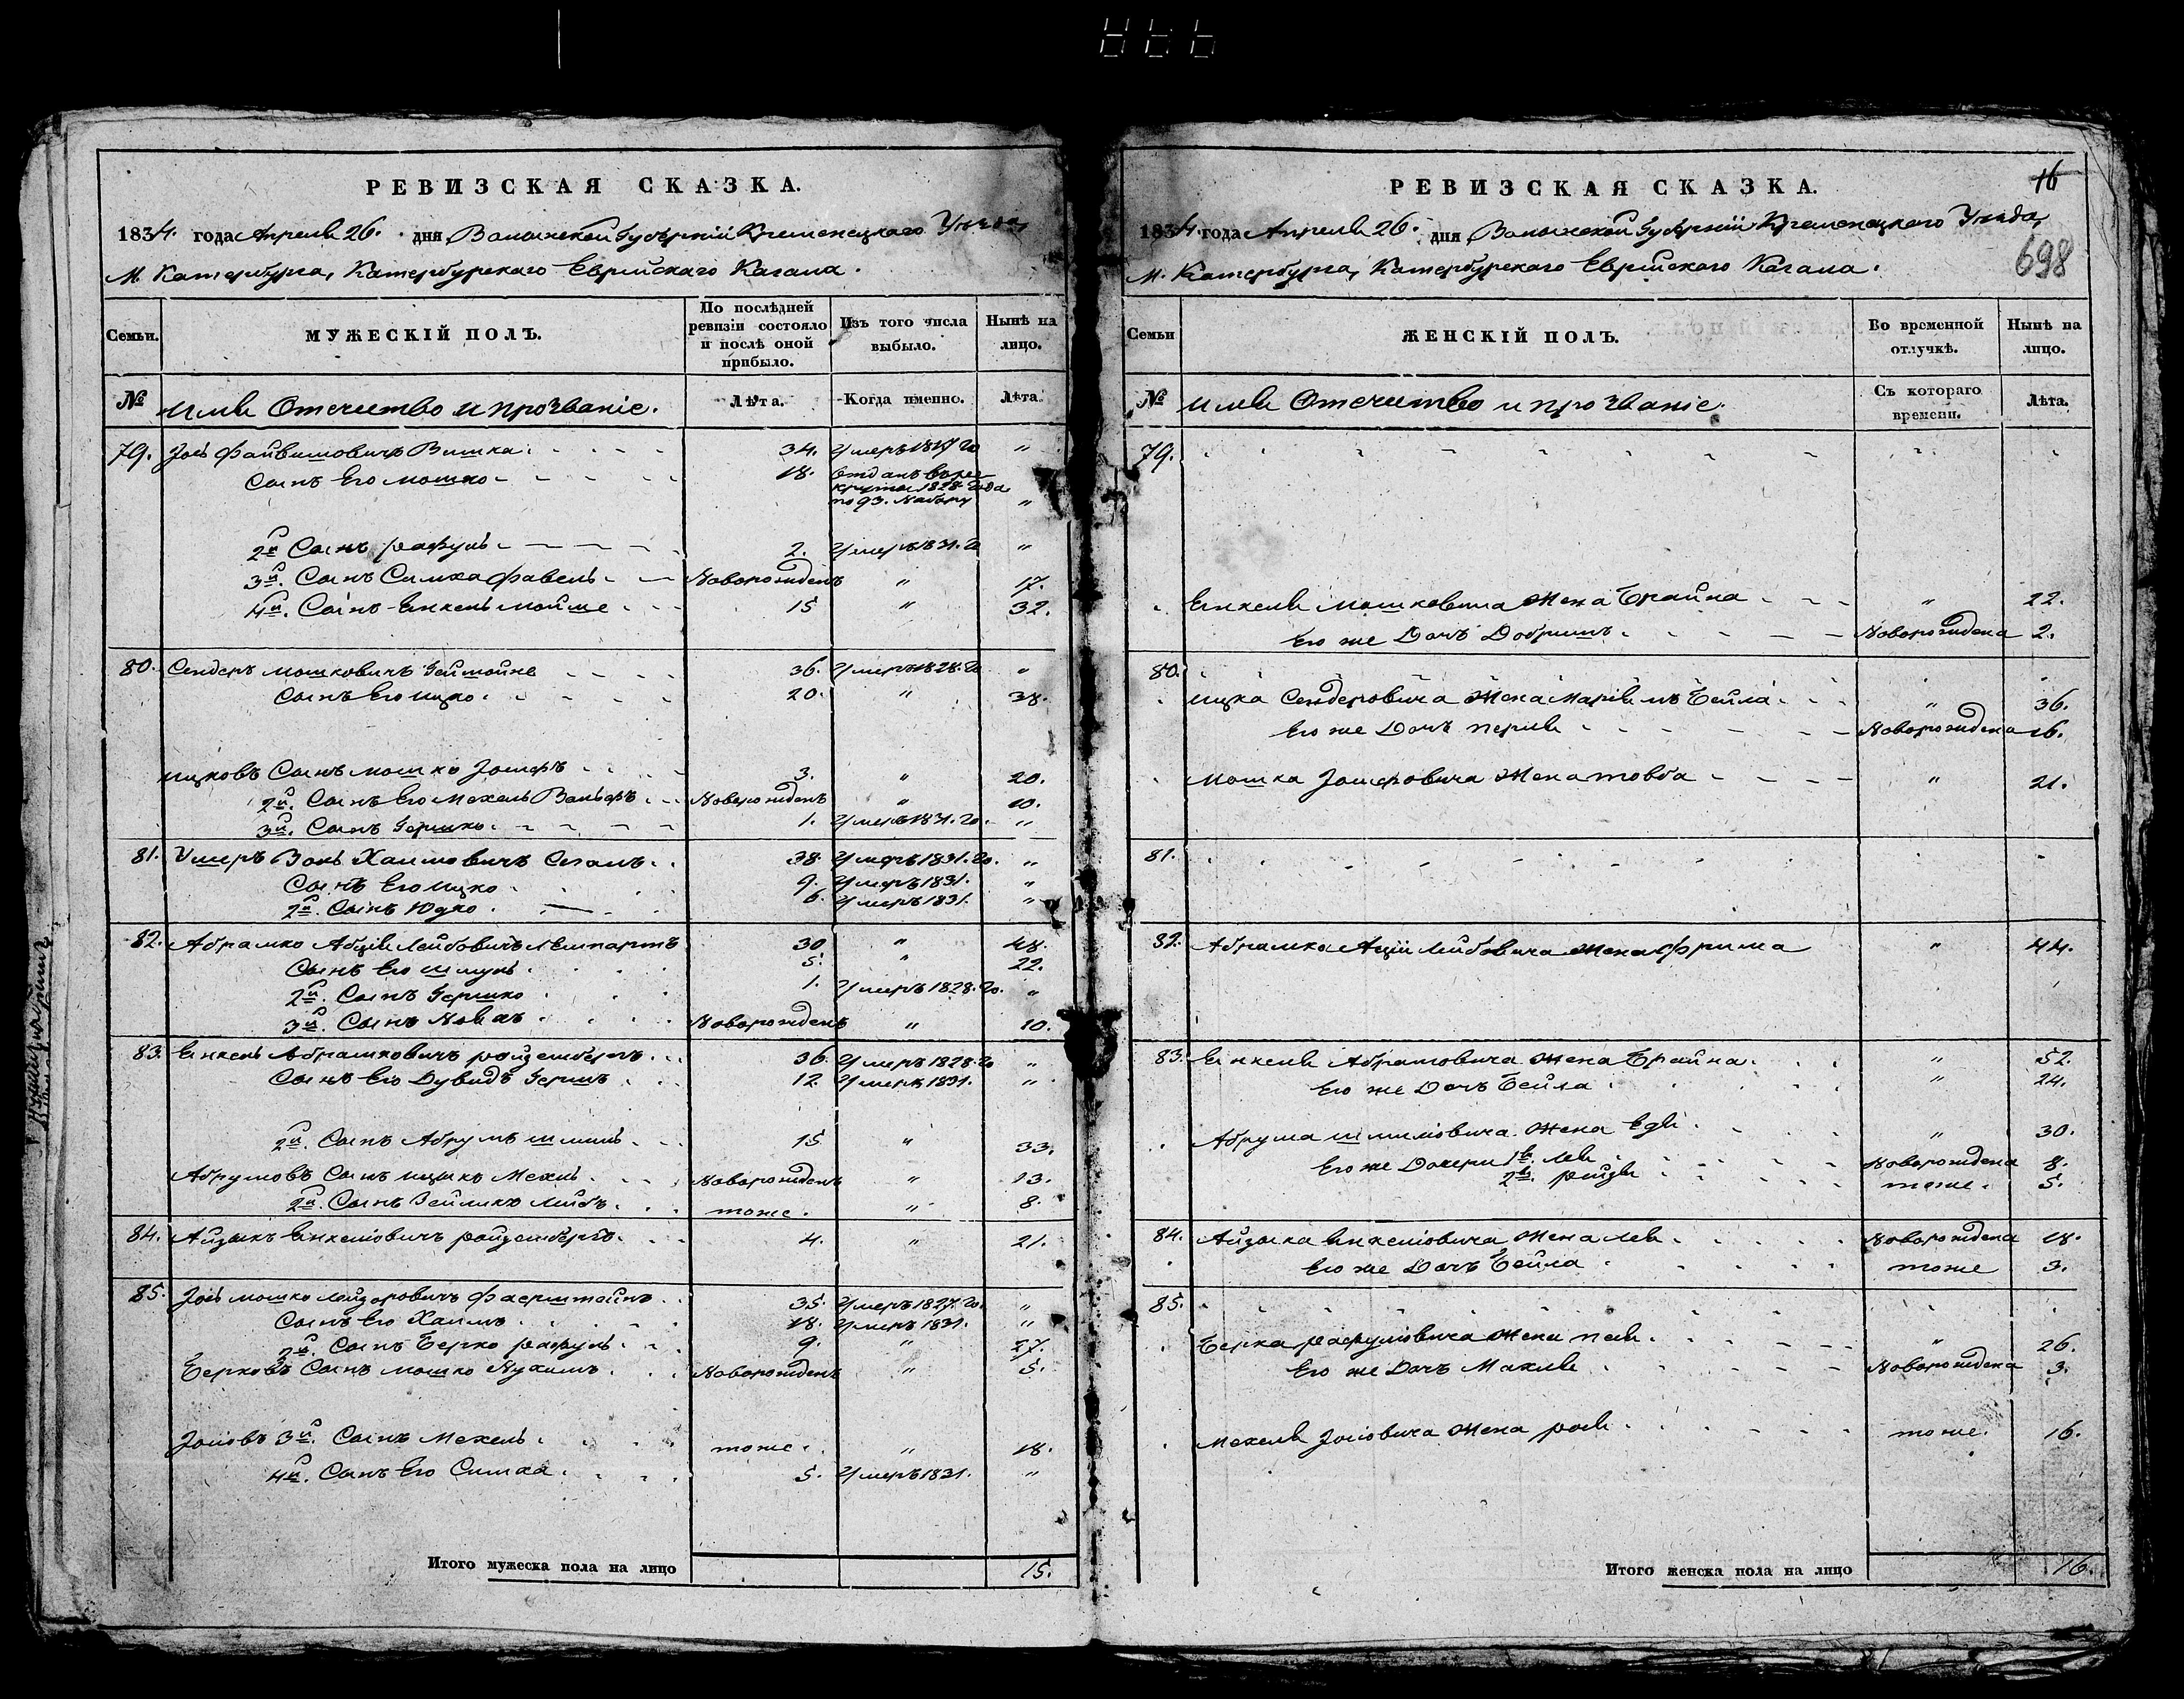 РЕВИЗСКАЯ СКАЗКА.
1834. года Апреля 26. дня Волынской Губернии Кременецкаго Уезда,
М. Катербурга, Катербурскаго Еврейскаго Кагала.
Семьи.
МУЖЕСКІЙ ПОЛЪ.
По послѣдней ревизіи состояло и послѣ оной прибыло.
Изъ того числа выбыло.
Нынѣ на лицо.
№
Имя Отечество и прозваніе.
Лѣта.
Когда именно.
Лѣта
79. Іось Файвишовичъ Вишка 34. Умеръ "
Сынъ Его Мошко 18. Отданъ въ рек-
круты 1828 года
по 93. Набору "
2й Сынъ рафуль 2. Умеръ 1831. го "
3й. Сынъ Симха Фавель Новорожденъ " 17.
4й. Сынъ Янкель Мойше 15 " 32.
80. Сендеръ Мошковичъ 36. Умеръ 1828. го "
Сынъ Его Ицко 20. " 38.
Ицковъ Сынъ Мошко 3. " 20.
2й. Сынъ Его Мехель Вольфъ Новорожденъ " 10.
3й. Сынъ Гершко 1. Умеръ 1831. го. "
81. Ушеръ Волъ Хаимовичъ Сегалъ 38. Умеръ 1831. го. "
Сынъ Его Ицко 9. Умеръ 1831. "
2й. Сынъ Юдко 6. Умеръ 1831. "
82. Абрамко Лейбовичъ 30 " 48.
Сынъ Его Шмуль 5. " 22.
2й. Сынъ Гершко 1. Умеръ 1828. го. "
3й. Сынъ Новорожденъ " 10.
83. Янкель Абрамковичъ ройзенбергъ 36. Умеръ 1828. го "
Сынъ Его Дувидъ Гершъ 12. Умеръ 1831. "
2й. Сынъ Абрумъ 15 " 33.
Абрумовъ Сынъ Ицыко Мехель Новорожденъ " 13.
2й. Сынъ Зейлико Лейбъ тоже. " 8.
84. Айзыкъ Янкелiовичъ ройзенбергъ. 4. " 21.
85. Іось Мошко Лейзоровичъ Фаерштейнъ 35. Умеръ 1827. го. "
Сынъ Его Хаимъ 18. Умеръ 1831. "
2й. Сынъ Берко рафуль 9. " 27.
Берковъ Сынъ Мошко Нухимъ Новорожденъ " 5.
Іосiовъ 3й. Сынъ Мехель тоже. " 18.
4й. Сынъ Его Симха 5. Умеръ 1831. "
Итого мужеска пола на лицо 15.
РЕВИЗСКАЯ СКАЗКА.
16
1834 года Апреля 26. дня Волынской Губерніи Кременецкаго Уезда,
М. Катербурга, Катербурскаго Еврейскаго Кагала.
698
Семьи
ЖЕНСКІЙ ПОЛЪ.
Во временной отлучкѣ.
Нынѣ на лицо.
№
Имя Отечество и прозваніе.
Съ котораго времени.
Лѣта.
79.
Янкеля Мошковича Жена Брайна " 22.
Его же Дочь Добришъ Новорождена 2.
80.
Ицка Сендеровича Жена Бейла " 36.
Его же Дочь перля Новорождена 16.
Мошка Жена товба " 21.
81.
82. Абрамка Лейбовича Жена Фрима " 44.
83. Янкеля Абрамовича Жена Брайна " 52.
Его же Дочь Бейла " 24.
Абрума Жена Едя " 30.
Его же Дочери 1я. Лея Новорождена 8.
2я. рейзя тоже. 5.
84. Айзыка Янкелiовича Жена Лея Новорождена 18.
Его же Дочь Бейла тоже 3.
85.
Берка рафулiовича Жена " 26.
Его же Дочь Махля Новорождена 3.
Мехеля Іосiовича Жена тоже. 16.
Итого женска пола на лицо 16.